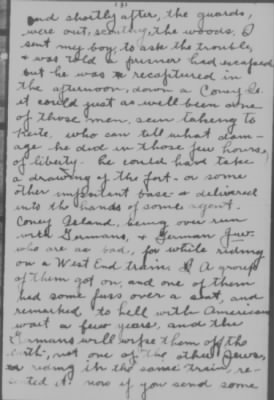 131
and shortly after, the guards,
were out, scouting, the woods. I
sent my boy, to ask the trouble,
& was told a prisner had escaped
but he was recaptured in
the afternoon, down a Coney Is.
it could just as well been one
of those men, seen taking to
heite. who can tell what dam-
age he did in those few hours,
of liberty. he could have take
a drawing of the fort. or some
other important base & delivered
into the hands of some agent.
Coney Island, being over run
with Germans, & German Jews.
who are as bad, for while riding
on a West End train, A group
of them got on, and one of them
had some fuss over a seat, and
remarked, to hell with American
wait a few years, and the
Germans will wipe them off the
earth, not one of the other Jews,
riding in the same train, re-
it. now if you send some